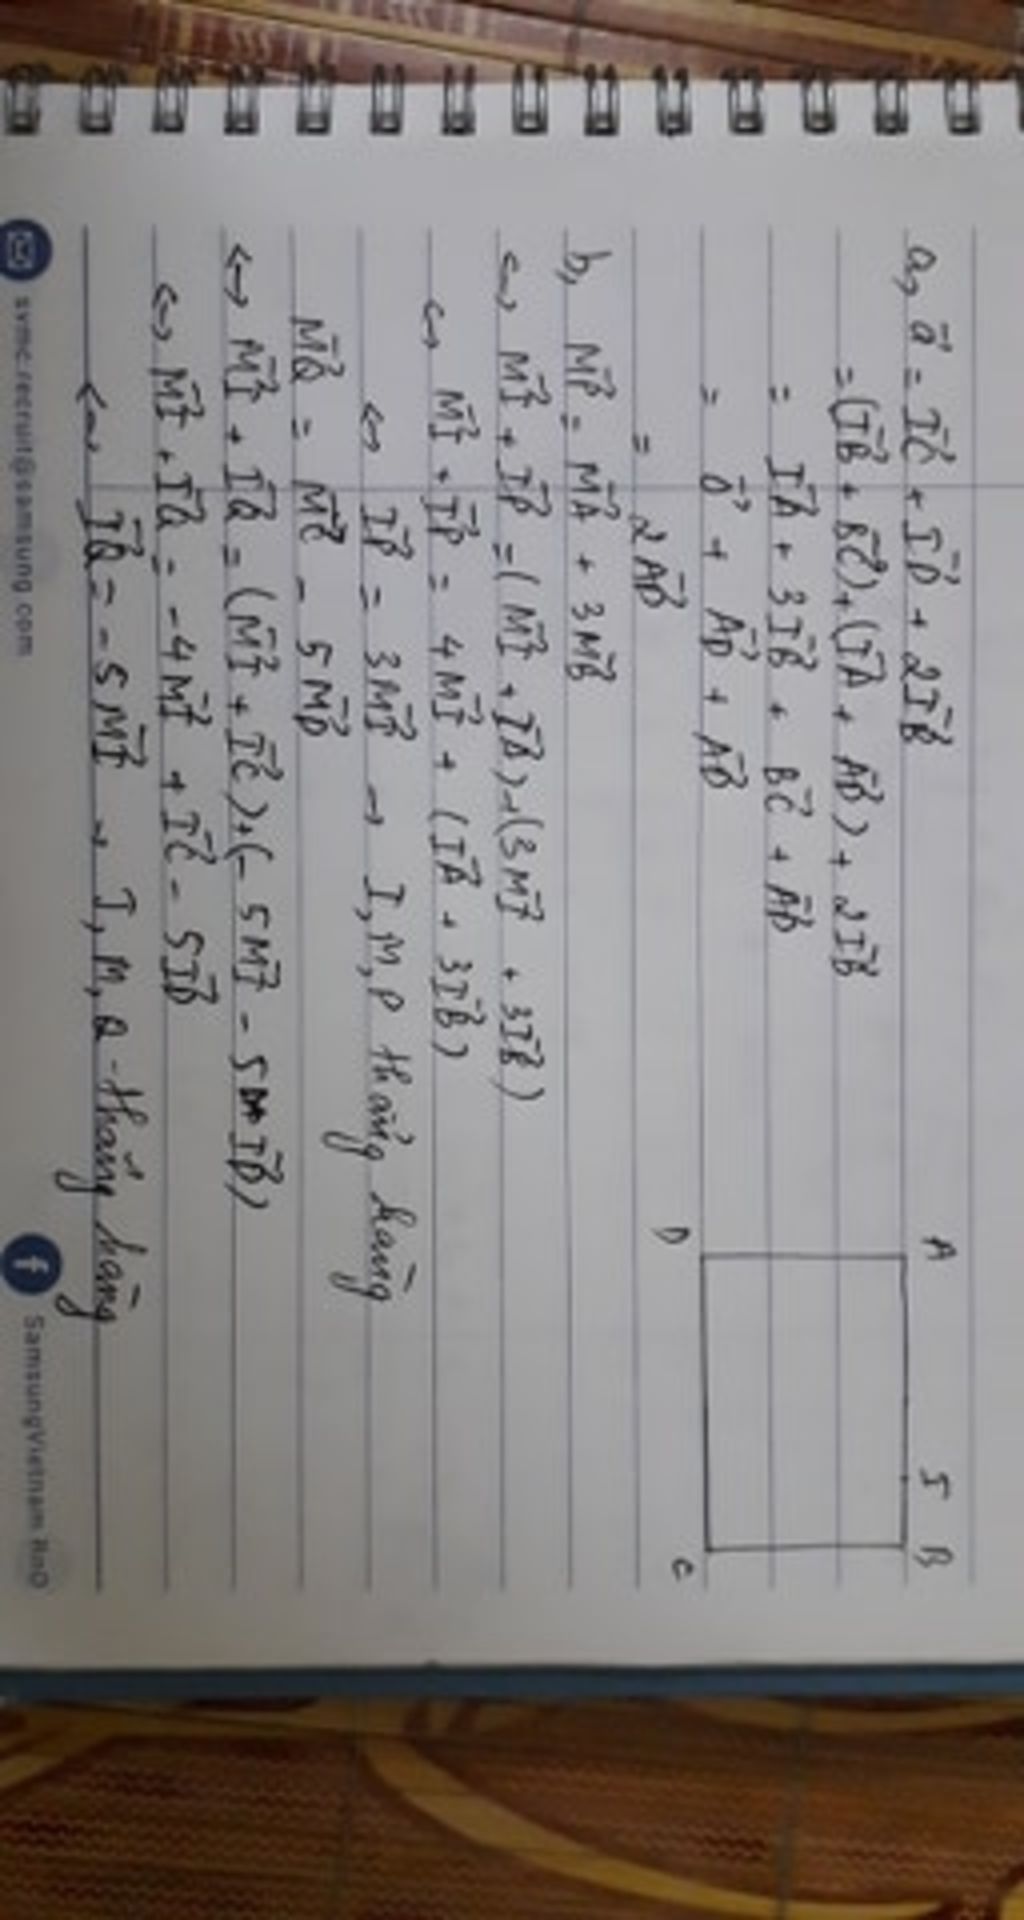 a, a⃗ = IC⃗ + ID⃗ + 2IB⃗
= (IB⃗ + BC⃗) + (IA⃗ + AD⃗) + 2IB⃗
= IA⃗ + 3IB⃗ + BC⃗ + AD⃗
= 0⃗ + AD⃗ + AD⃗
= 2AD⃗
A I B
D C
b, MP⃗ = MA⃗ + 3MB⃗
<=> MI⃗ + IP⃗ = (MI⃗ + IA⃗) + (3MI⃗ + 3IB⃗)
<=> MI⃗ + IP⃗ = 4MI⃗ + (IA⃗ + 3IB⃗)
<=> IP⃗ = 3MI⃗ → I, M, P thẳng hàng
MQ⃗ = MC⃗ - 5MD⃗
<=> MI⃗ + IQ⃗ = (MI⃗ + IC⃗) + (- 5MI⃗ - 5 ID⃗)
<=> MI⃗ + IQ⃗ = -4MI⃗ + IC⃗ - 5ID⃗
<=> IQ⃗ = -5MI⃗ → I, M, Q thẳng hàng
svmc.recruit@samsung.com
f SamsungVietnam RnD